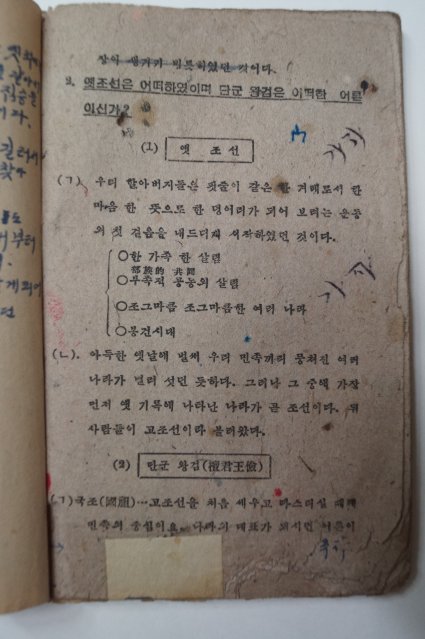 장이 생기기 비롯하였던 것이다.
2. 옛조선은 어떠하였이며 단군 왕검은 어떠한 어른
이신가?
(1) 옛 조 선
(ㄱ) 우리 할아버지들은 핏줄이 같은 한 겨레로서 한
마음 한 뜻으로 한 덩어리가 되어 보려는 운동
의 첫 걸음을 내드디기 시작하였던 것이다.
○한 가족 한 살림
部族的 共同
○부족적 공동의 살림
○조그마큼 조그마큼한 여러 나라
○봉건시대
(ㄴ). 아득한 옛날에 벌써 우리 민족끼리 뭉쳐진 여러
나라가 벌려 섯던 듯하다. 그러나 그 중에 가장
먼저 옛 기록에 나타난 나라가 곧 조선이다. 뒤
사람들이 고조선이라 불러왔다.
(2) 단군 왕검(檀君王儉)
(ㄱ)국조(國祖)…고조선을 처음 세우고 다스리실 때에
민족의 중심이요 나라의 대표가 되시던 어른이